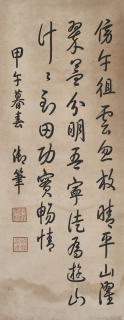 傍午徂雲忽放晴平山濯
翠益分明吾寧徒為遊山
計〻到田功實暢情
甲午暮春 御筆